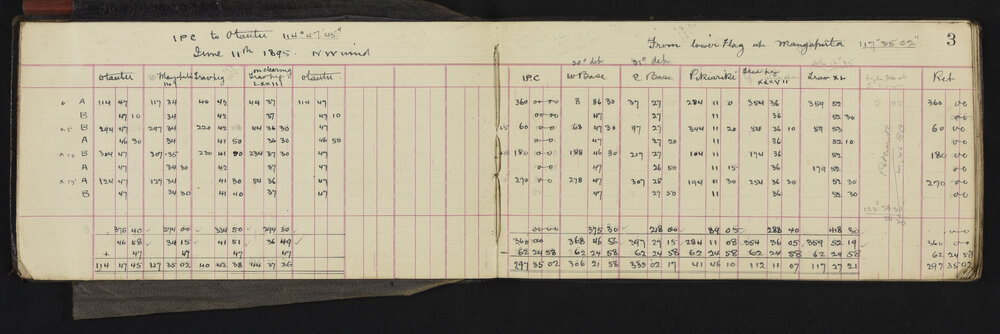 IPC to Otautu 114° 47' 45"
June 11th 1895. NW wind
Otautu Mangaputa Trav peg on clearing Trav peg LXXIII Otautu
0 A 114 47 117 34 40 42 44 37 114 47
B 47 10 34 42 37 47 10
x5 B 294 47 297 34 220 42 44 36 30 47
A 46 30 34 41 50 36 30 46 50
x10 B 304 47 307 35 230 41 50 234 37 30 47
A 47 34 30 42 37 47
x15 A 124 47 127 34 41 30 54 36 47
B 47 34 30 41 40 36 47
375 40 274 00 334 50 294 50
46 58 34 15 41 51 36 49
+ 47 47 47 47
114 47 45 117 35 02 40 42 38 44 37 36
From lower Flag at Mangaputa 117° 35' 02"
3
20" dep 31" dep
IPC W Base E Base Pikiwiriki Trav peg XXXVII Trav XL Ref
360 00 00 8 46 30 37 27 284 11 0 354 36 359 52 360 00
00 00 47 27 11 36 52 30 00
60 00 68 47 30 97 27 344 11 20 54 36 10 59 53 60 00
00 00 47 27 20 11 36 52 10 00
180 00 00 188 46 30 217 27 104 11 174 36 52 180 00
00 00 47 26 50 11 15 36 179 52 00
270 00 278 47 307 28 194 11 30 254 36 30 52 30 270 00
00 00 47 27 50 11 36 52 30 00
00 00 375 30 218 00 89 05 288 40 418 30
360 00 368 46 56 397 27 15 284 11 08 354 36 05 359 52 19 360 00
62 24 58 62 24 58 62 24 58 62 24 58 62 24 58 62 24 58 62 24 58
297 35 02 306 21 58 335 02 17 41 46 10 112 11 07 117 27 21 297 35 02